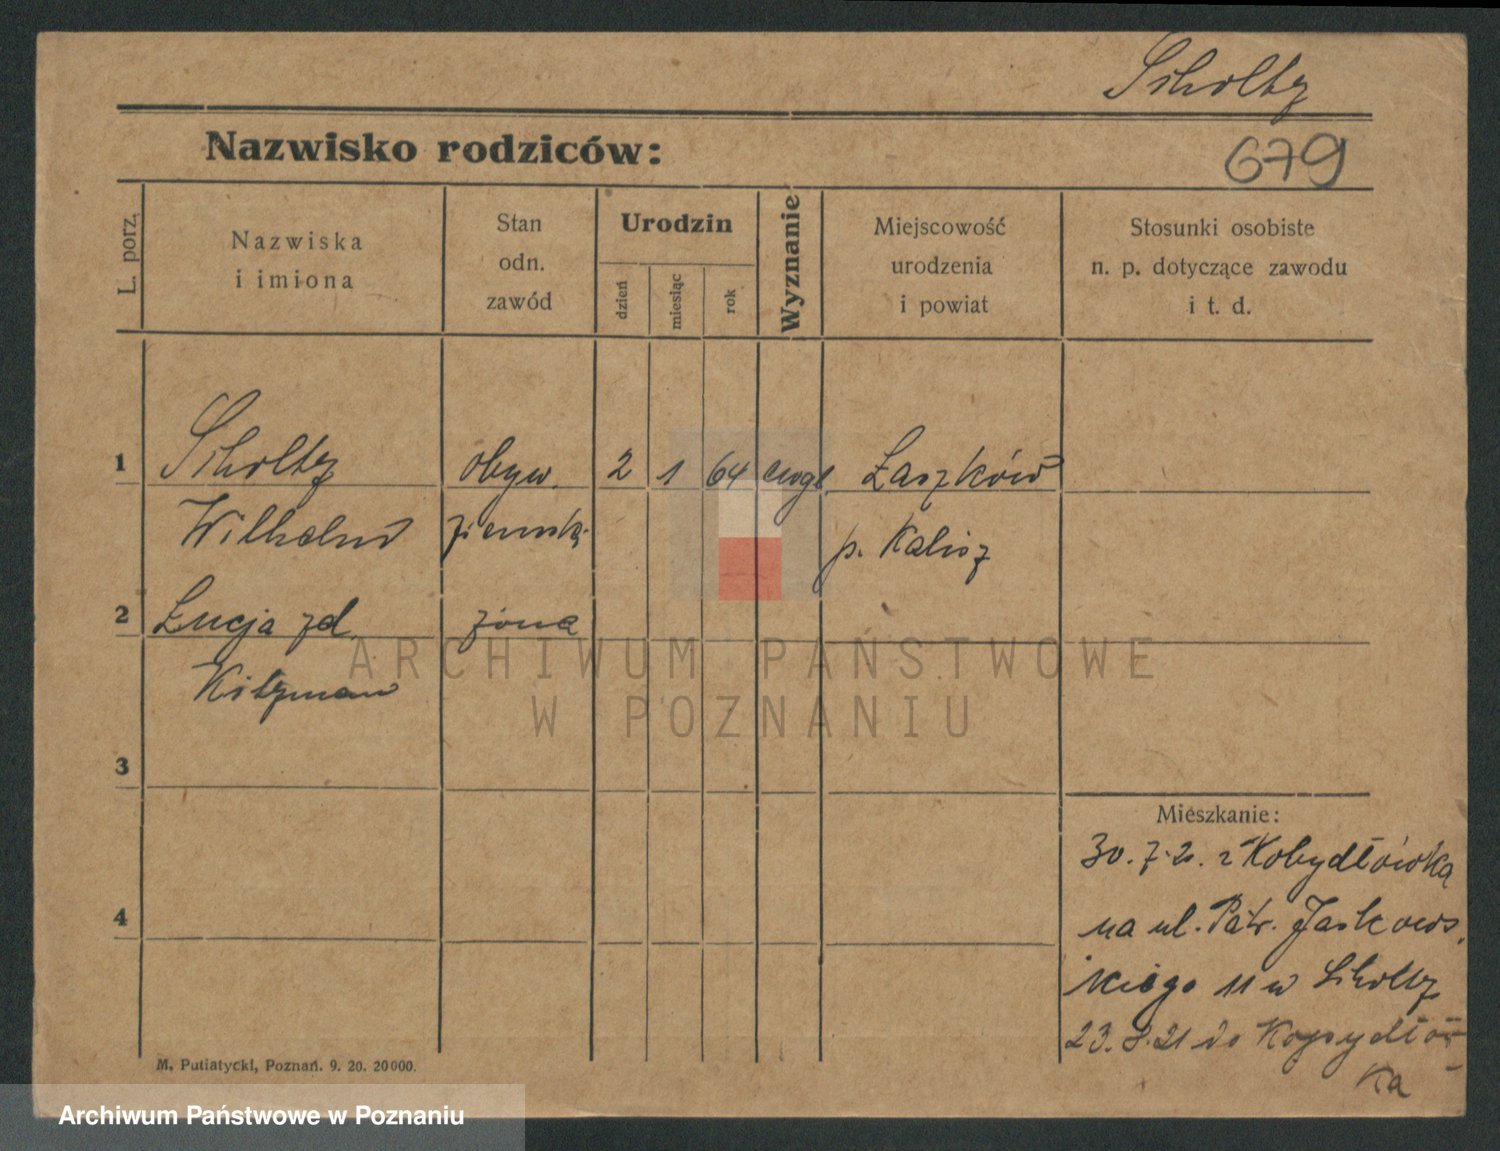 Scholtz
679
Nazwisko rodziców:
L. porz.
Nazwiska
i imiona
Stan
odn.
zawód
Urodzin
dzień
miesiąc
rok
Wyznanie
Miejscowość
urodzenia
i powiat
Stosunki osobiste
n. p. dotyczące zawodu
i t. d.
1
Scholtz
obyw.
2
1
64
ewgl.
Łaszków
Wilhelm
ziemski
p. Kalisz
2
Łucja zd.
żona
Kitzman
3
4
Mieszkanie:
30. 7. 21. z Kobydłówką
na ul. Patr. Jackows.
kiego 11 w Scholtz
23. 8. 21 do Kopydłów
ka
M. Putiatycki, Poznań. 9. 20. 20000.
ARCHIWUM PAŃSTWOWE
W POZNANIU
Archiwum Państwowe w Poznaniu